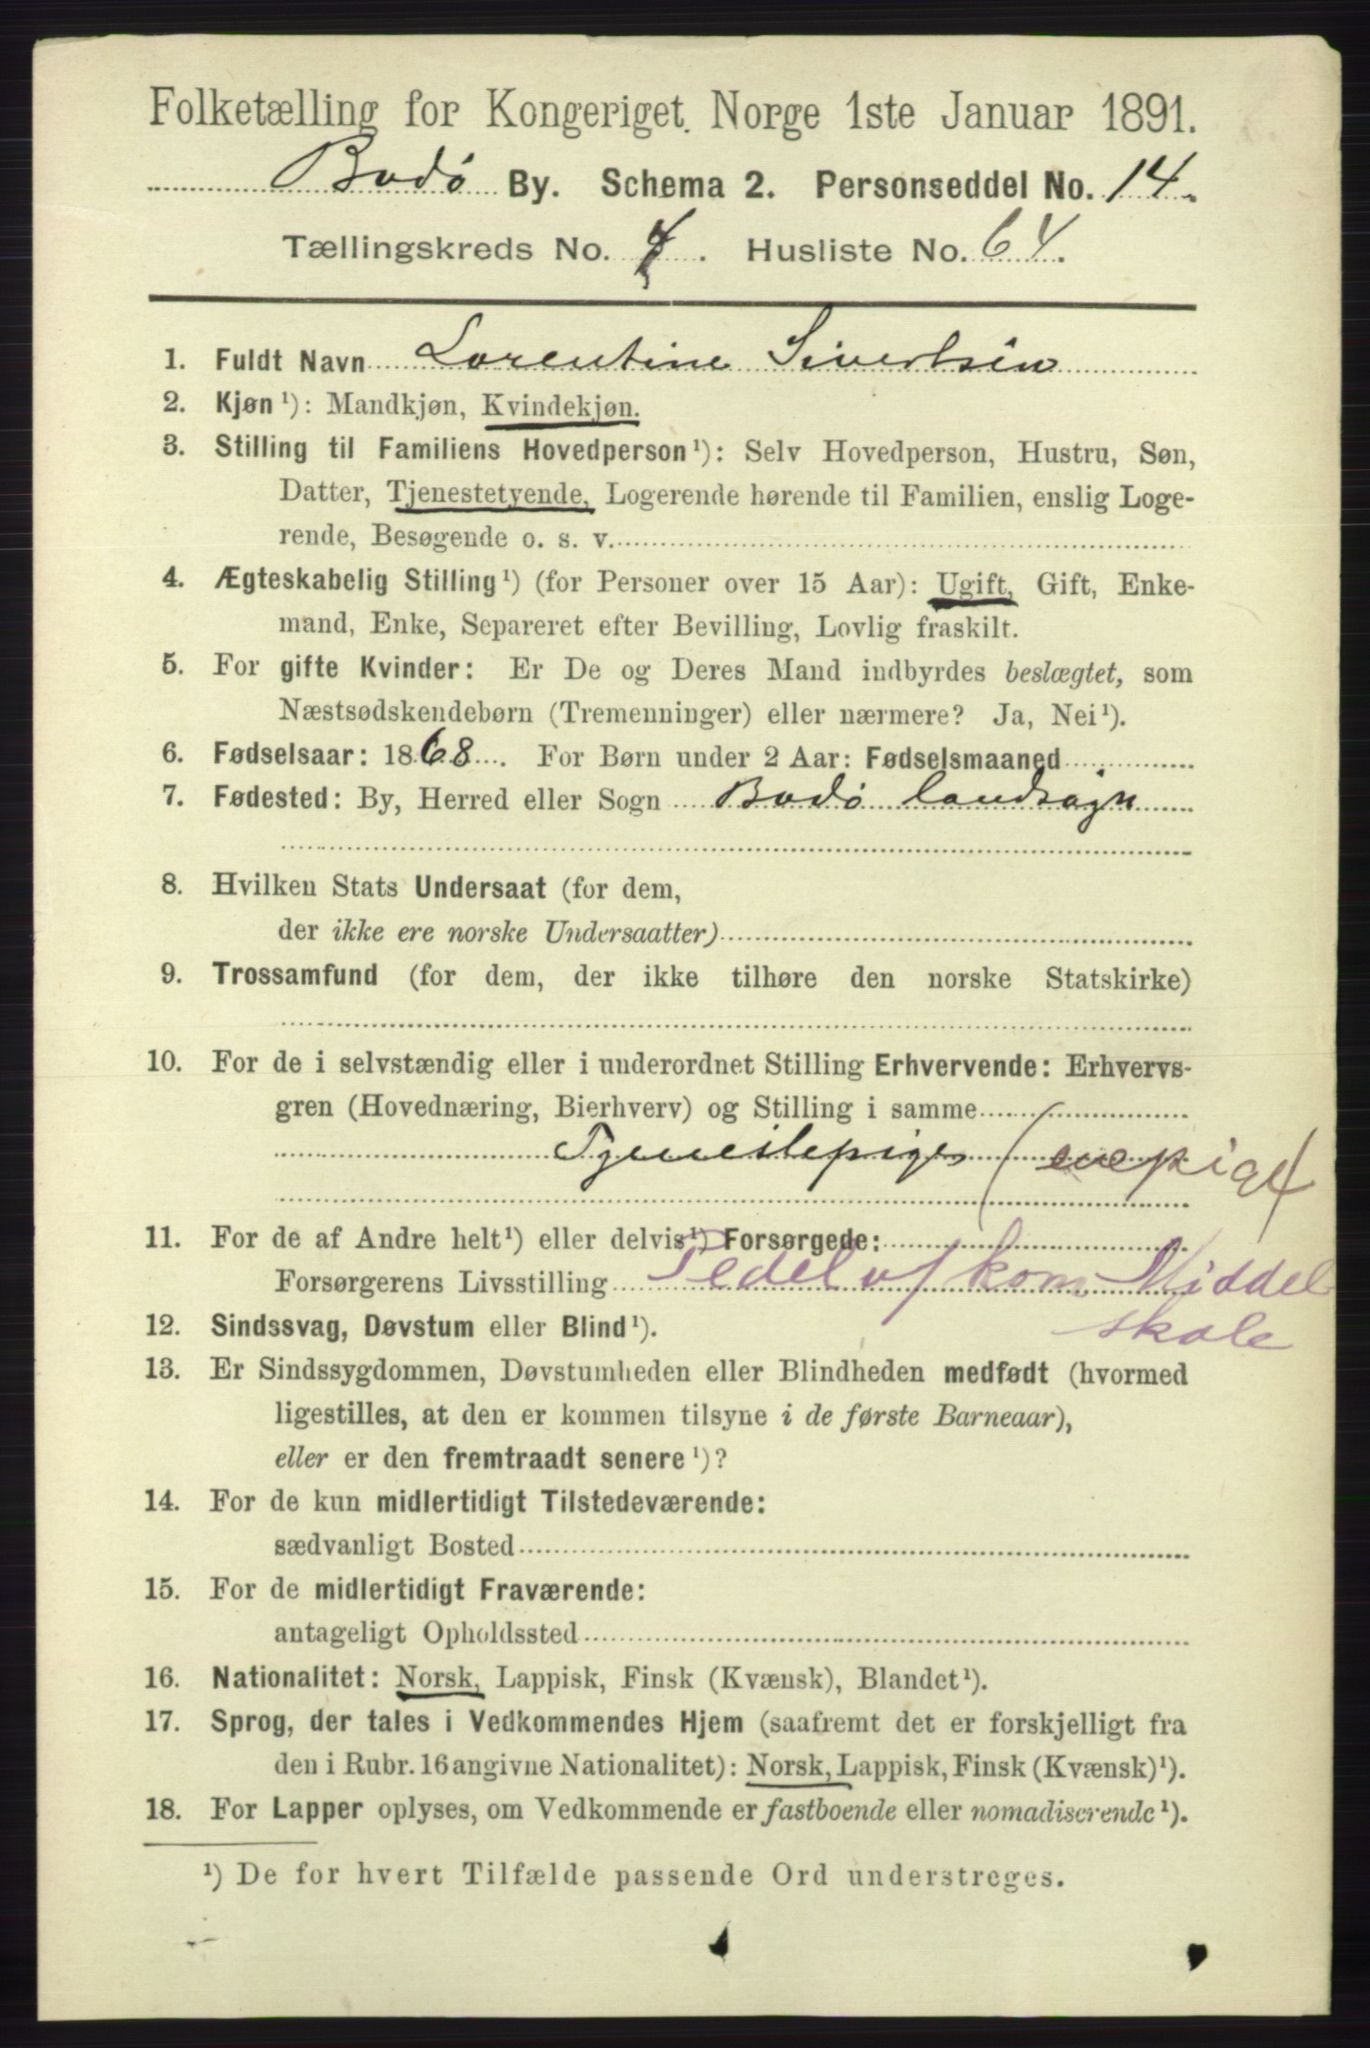 Folketælling for Kongeriget Norge 1ste Januar 1891.
Bodø By. Schema 2. Personseddel No. 14.
Tællingskreds No. 4. Husliste No. 64.
1. Fuldt Navn Lorentine Sivertsen
2. Kjøn¹): Mandkjøn, Kvindekjøn.
3. Stilling til Familiens Hovedperson¹): Selv Hovedperson, Hustru, Søn,
Datter, Tjenestetyende, Logerende hørende til Familien, enslig Loge-
rende, Besøgende o. s. v.
4. Ægteskabelig Stilling¹) (for Personer over 15 Aar): Ugift, Gift, Enke-
mand, Enke, Separeret efter Bevilling, Lovlig fraskilt.
5. For gifte Kvinder: Er De og Deres Mand indbyrdes beslægtet, som
Næstsødskendebørn (Tremenninger) eller nærmere? Ja, Nei¹).
6. Fødselsaar: 1868. For Børn under 2 Aar: Fødselsmaaned
7. Fødested: By, Herred eller Sogn Bodø landsogn
8. Hvilken Stats Undersaat (for dem,
der ikke ere norske Undersaatter)
9. Trossamfund (for dem, der ikke tilhøre den norske Statskirke)
10. For de i selvstændig eller i underordnet Stilling Erhvervende: Erhvervs-
gren (Hovednæring, Bierhverv) og Stilling i samme
Tjenestepige (enepige)
11. For de af Andre helt¹) eller delvis¹) Forsørgede:
Forsørgerens Livsstilling Pedel v/ kom Middel
skole
12. Sindssvag, Døvstum eller Blind¹).
13. Er Sindssygdommen, Døvstumheden eller Blindheden medfødt (hvormed
ligestilles, at den er kommen tilsyne i de første Barneaar),
eller er den fremtraadt senere¹)?
14. For de kun midlertidigt Tilstedeværende:
sædvanligt Bosted
15. For de midlertidigt Fraværende:
antageligt Opholdssted
16. Nationalitet: Norsk, Lappisk, Finsk (Kvænsk), Blandet¹).
17. Sprog, der tales i Vedkommendes Hjem (saafremt det er forskjelligt fra
den i Rubr. 16 angivne Nationalitet): Norsk, Lappisk, Finsk (Kvænsk)¹).
18. For Lapper oplyses, om Vedkommende er fastboende eller nomadiserende¹).
¹) De for hvert Tilfælde passende Ord understreges.